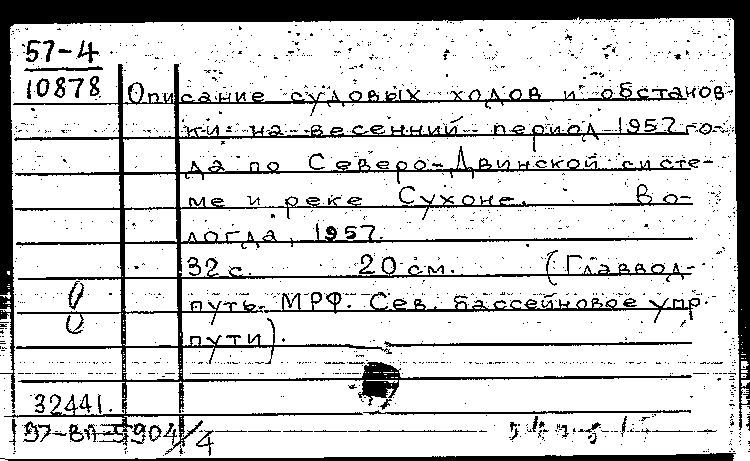 57-4
10878
Описание судовых ходов и обстанов-
ки на весенний период 1957 го-
да по Северо-Двинской систе-
ме и реке Сухоне. Во-
логда, 1957.
32 с. 20 см. (Главвод-
путь МРФ. Сев. бассейновое упр.
пути).
32441.
57-ВП-5904/4